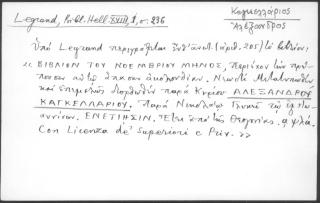 Legrand, Bibl. Hell. XVIII, 1, σ. 236
Καγκελλάριος
Ἀλέξανδρος
Ὑπὸ Legrand περιγράφεται ἐνθ' ἀνωτ. (ἀριθ. 205) τὸ βιβλίον:
« ΒΙΒΛΙΟΝ ΤΟΥ ΝΟΕΜΒΡΙΟΥ ΜΗΝΟΣ, περιέχον τὴν πρέ-
πουσαν αὐτῷ ἅπασαν ἀκολουθίαν. Νεωστὶ Μετατυπωθὲν
καὶ ἐπιμελῶς διορθωθὲν παρὰ Κυρίου ΑΛΕΞΑΝΔΡΟΥ
ΚΑΓΚΕΛΛΑΡΙΟΥ. Παρὰ Νικολάῳ Γλυκεῖ τῷ ἐξ Ἰωαν-
νίνων. ΕΝΕΤΙΗΣΙΝ. Ἔτει ἀπὸ τῆς Θεογονίας. αψλα.
Con Licenza de' Superiori e Priv. »